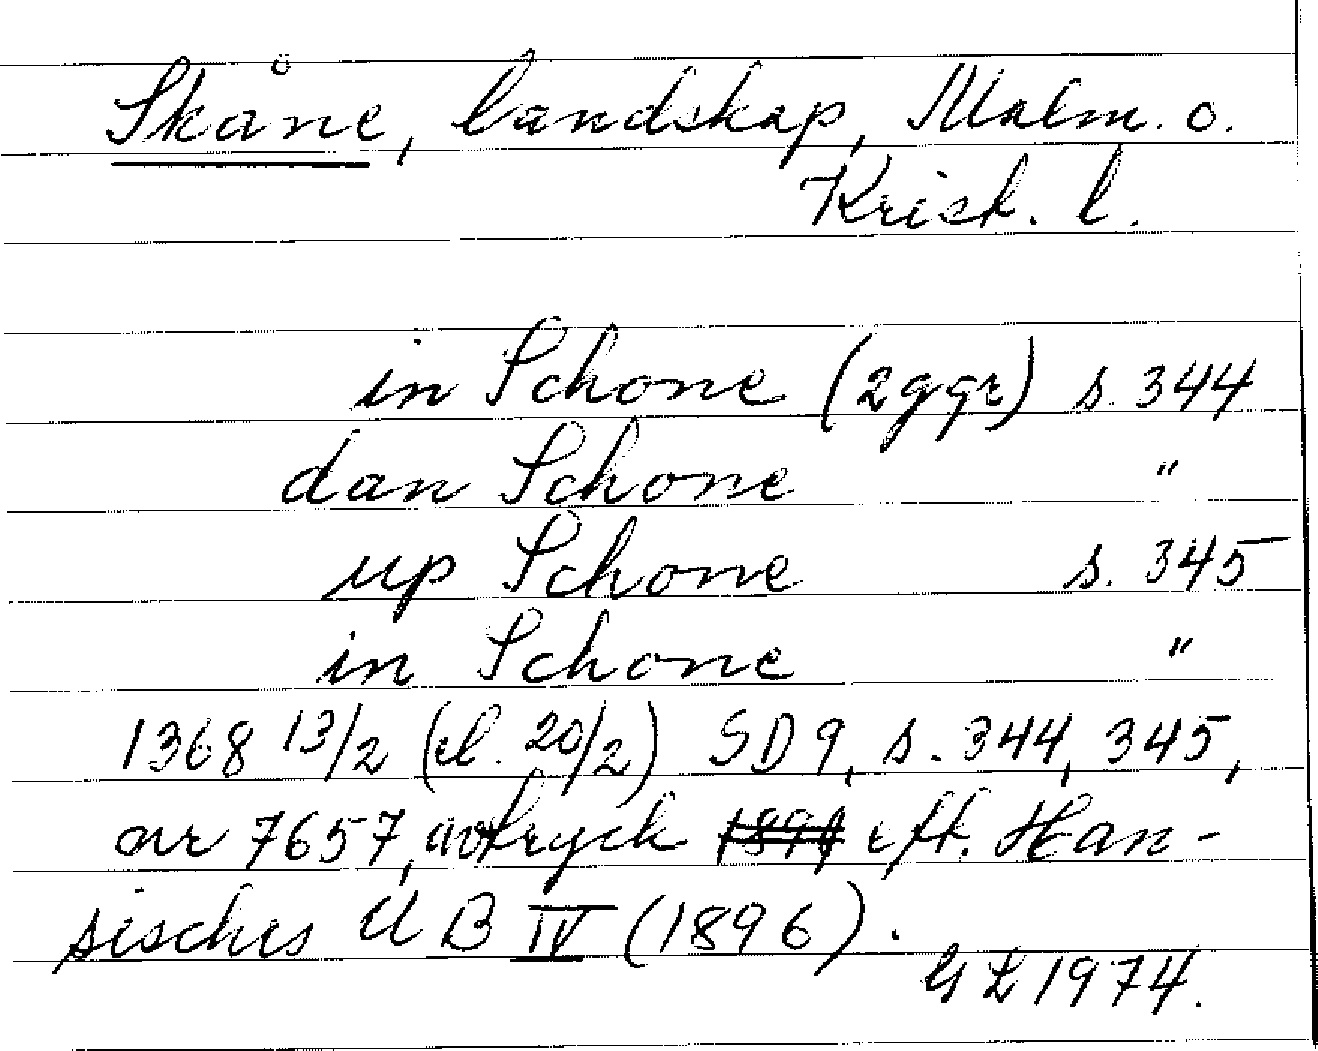 Skåne, landskap, Malm. o.
Krist. l.
in Schone (2ggr) s. 344
dan Schone "
up Schone s. 345
in Schone "
1368 13/2 (el. 20/2) SD 9, s. 344, 345,
nr 7657, avtryck 1891 eft. Han-
sisches U B IV (1896).
G L 1974.